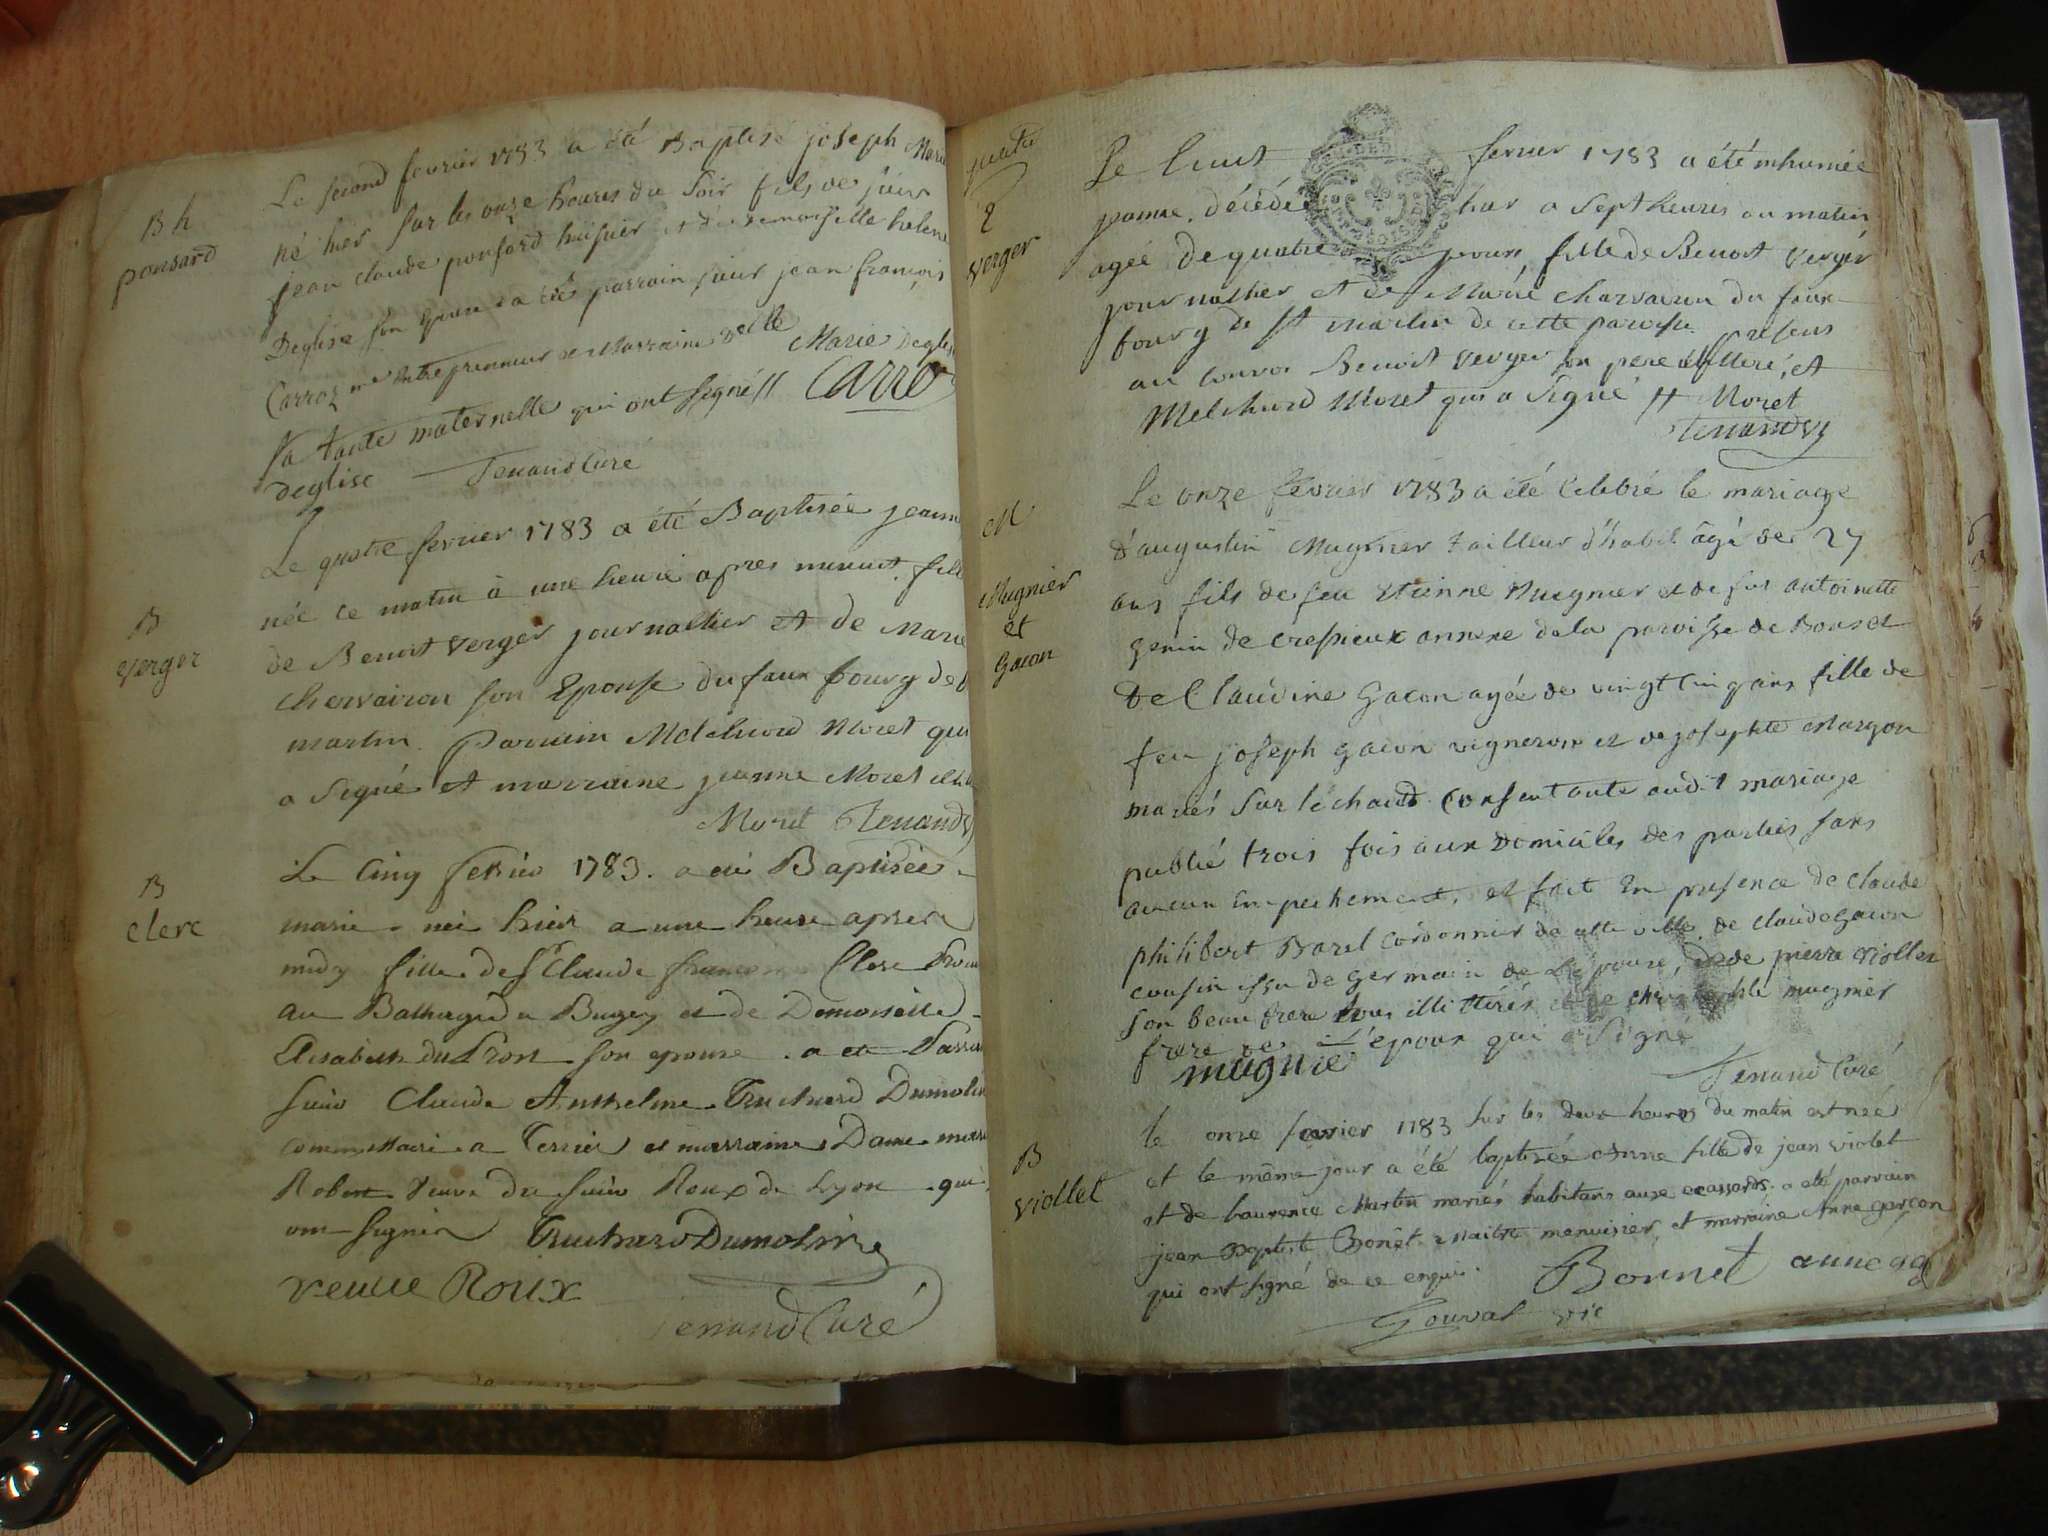 B h
ponsard
Le second fevrier 1783 a été Baptisé joseph Marie
né hier sur les onze heures du soir fils de sieur
jean claude ponsard huissier et de demoiselle helene
Deglise son Epouse a été parrain sieur jean françois
Carroz me Entrepreneur et Marraine Delle Marie Deglise
sa tante maternelle qui ont signé // Carro
deglise Tenand Curé
B
verger
Le quatre fevrier 1783 a été Baptisée jeanne
née ce matin à une heure apres minuit fille
de Benoit verger journallier et de Marie
chervairon son Epouse du faux bourg de st
martin. Parrain Melchiord Moret qui
a signé et marraine jeanne Moret
Moret Tenand
B
clerc
Le Cinq fevrier 1783. a été Baptisée
marie née hier a une heure apres
midy fille de Sr Claude françois Clerc
au Balliage du Bugey et de Demoiselle
Elisabeth Du son epouse. a été Parrain
sieur Claude Anthelme Truchard Dumolin
commissaire a Terrier et marraine Dame
Robert Veuve du sieur Roux de Lyon qui
ont signer Truchard Dumolin
veuve Roux
Tenand Curé
verger
Le huit fevrier 1783 a été inhumée
jeanne, décédée hier a sept heures du matin
agée de quatre jours, fille de Benoit Verger
journallier et de Marie charvairon du faux
bourg de st martin de cette paroisse presens
au convoi Benoit Verger son pere illiteré, et
Melchiord Moret qui a signé // Moret
Tenand
M
Mugnier
et
Gacon
Le onze fevrier 1783 a été Celebré le mariage
d'augustin Mugnier tailleur d'habit âgé de 27
ans fils de feu Etienne Mugnier et de feu antoinette
genin de crepieux annexe de la paroisse de
De Claudine Gacon agée de vingt cinq ans fille de
feu joseph gacon vigneron et de josephte Margon
mariés sur léchaud Consentante audit mariage
publié trois fois aux Domiciles des parties sans
aucun Empechement, et fait En presence de claude
philibert Barel cordonnier de cette ville, de claude gacon
cousin issu de germain de L'epouse, de pierre viollet
son beau frere tous illittérés et de mugnier
frere de L'epoux qui a signé
mugnié
Tenand Curé
B
viollet
le onze fevrier 1783 sur les deux heures du matin est née
et le même jour a été baptisée Anne fille de jean violet
et de Laurence Martin mariés habitans aux ecassards a été parrain
jean Baptiste Bonet Maitre menuisier, et marraine Anne garçon
qui ont signé de ce enquis.
Bonnet anne
Gourat vic